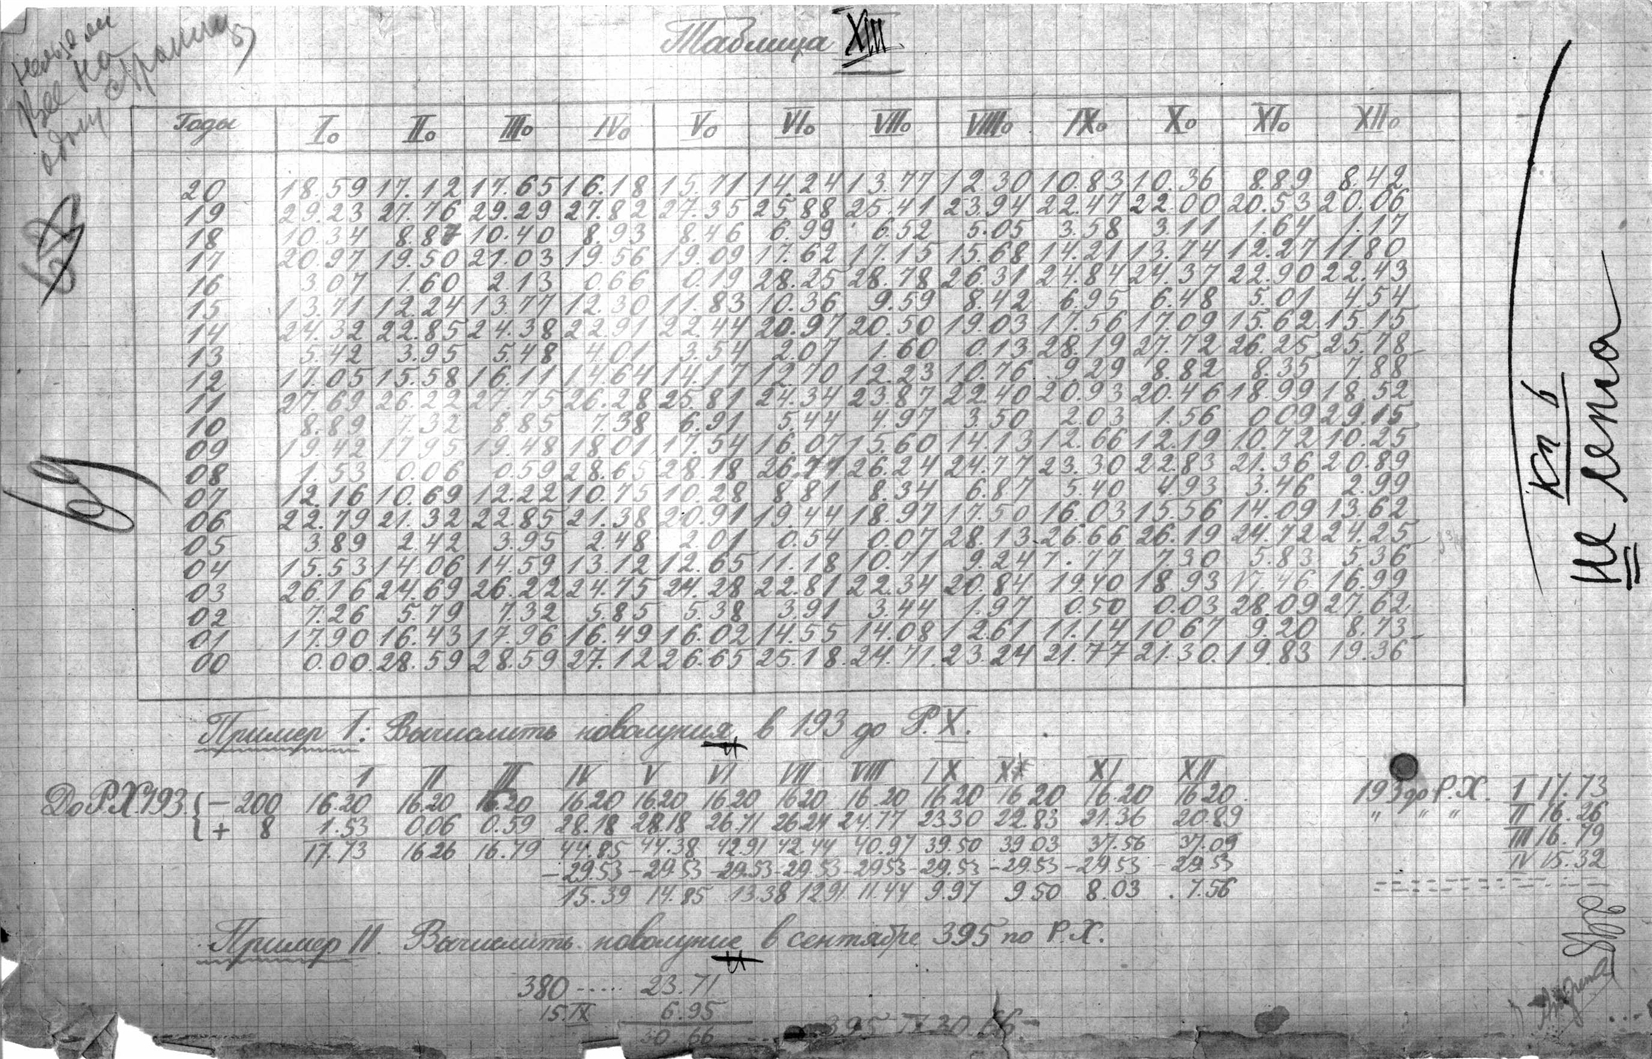 Таблица XIII
Все на
одну страницу
69
Кл 6
не лепо
Годы I₀ II₀ III₀ IV₀ V₀ VI₀ VII₀ VIII₀ IX₀ X₀ XI₀ XII₀
20 18.59 17.12 17.65 16.18 15.71 14.24 13.77 12.30 10.83 10.36 8.89 8.42
19 29.23 27.76 29.29 27.82 27.35 25.88 25.41 23.94 22.47 22.00 20.53 20.06
18 10.34 8.87 10.40 8.93 8.46 6.99 6.52 5.05 3.58 3.11 1.64 1.17
17 20.97 19.50 21.03 19.56 19.09 17.62 17.15 15.68 14.21 13.74 12.27 11.80
16 3.07 1.60 2.13 0.66 0.19 28.25 28.78 26.31 24.84 24.37 22.90 22.43
15 13.71 12.24 13.77 12.30 11.83 10.36 9.59 8.42 6.95 6.48 5.01 4.54
14 24.32 22.85 24.38 22.91 22.44 20.97 20.50 19.03 17.56 17.09 15.62 15.15
13 5.42 3.95 5.48 4.01 3.54 2.07 1.60 0.13 28.19 27.72 26.25 25.78
12 17.05 15.58 16.11 14.64 14.17 12.70 12.23 10.76 9.29 8.82 8.35 7.88
11 27.69 26.22 27.75 26.28 25.81 24.34 23.87 22.40 20.93 20.46 18.99 18.52
10 8.89 7.32 8.85 7.38 6.91 5.44 4.97 3.50 2.03 1.56 0.09 29.15
09 19.42 17.95 19.48 18.01 17.54 16.07 15.60 14.13 12.66 12.19 10.72 10.25
08 1.53 0.06 0.59 28.65 28.18 26.71 26.24 24.77 23.30 22.83 21.36 20.89
07 12.16 10.69 12.22 10.75 10.28 8.81 8.34 6.87 5.40 4.93 3.46 2.99
06 22.79 21.32 22.85 21.38 20.91 19.44 18.97 17.50 16.03 15.56 14.09 13.62
05 3.89 2.42 3.95 2.48 2.01 0.54 0.07 28.13 26.66 26.19 24.72 24.25
04 15.53 14.06 14.59 13.12 12.65 11.18 10.71 9.24 7.77 7.30 5.83 5.36
03 26.16 24.69 26.22 24.75 24.28 22.81 22.34 20.84 19.40 18.93 17.46 16.99
02 7.26 5.79 7.32 5.85 5.38 3.91 3.44 1.97 0.50 0.03 28.09 27.62
01 17.90 16.43 17.96 16.49 16.02 14.55 14.08 12.61 11.14 10.67 9.20 8.73
00 0.00 28.59 28.59 27.12 26.65 25.18 24.71 23.24 21.77 21.30 19.83 19.36
Пример I: Вычислить новолуния в 193 до Р.X.
I II III IV V VI VII VIII IX X XI XII
До Р.X 193 { - 200 16.20 16.20 16.20 16.20 16.20 16.20 16.20 16.20 16.20 16.20 16.20 16.20
+ 8 1.53 0.06 0.59 28.18 28.18 26.71 26.24 24.77 23.30 22.83 21.36 20.89
17.73 16.26 16.79 44.85 44.38 42.91 42.44 40.97 39.50 39.03 37.56 37.09
-29.53 -29.53 -29.53 -29.53 -29.53 -29.53 -29.53 -29.53 29.53
15.39 14.85 13.38 12.91 11.44 9.97 9.50 8.03 7.56
193 до Р.X. I 17.73
" " " II 16.26
III 16.79
IV 15.32
Пример II Вычислить новолуние в сентябре 395 по Р.X.
380 ..... 23.71
15.IX 6.95
30.66 395 IX 30.66